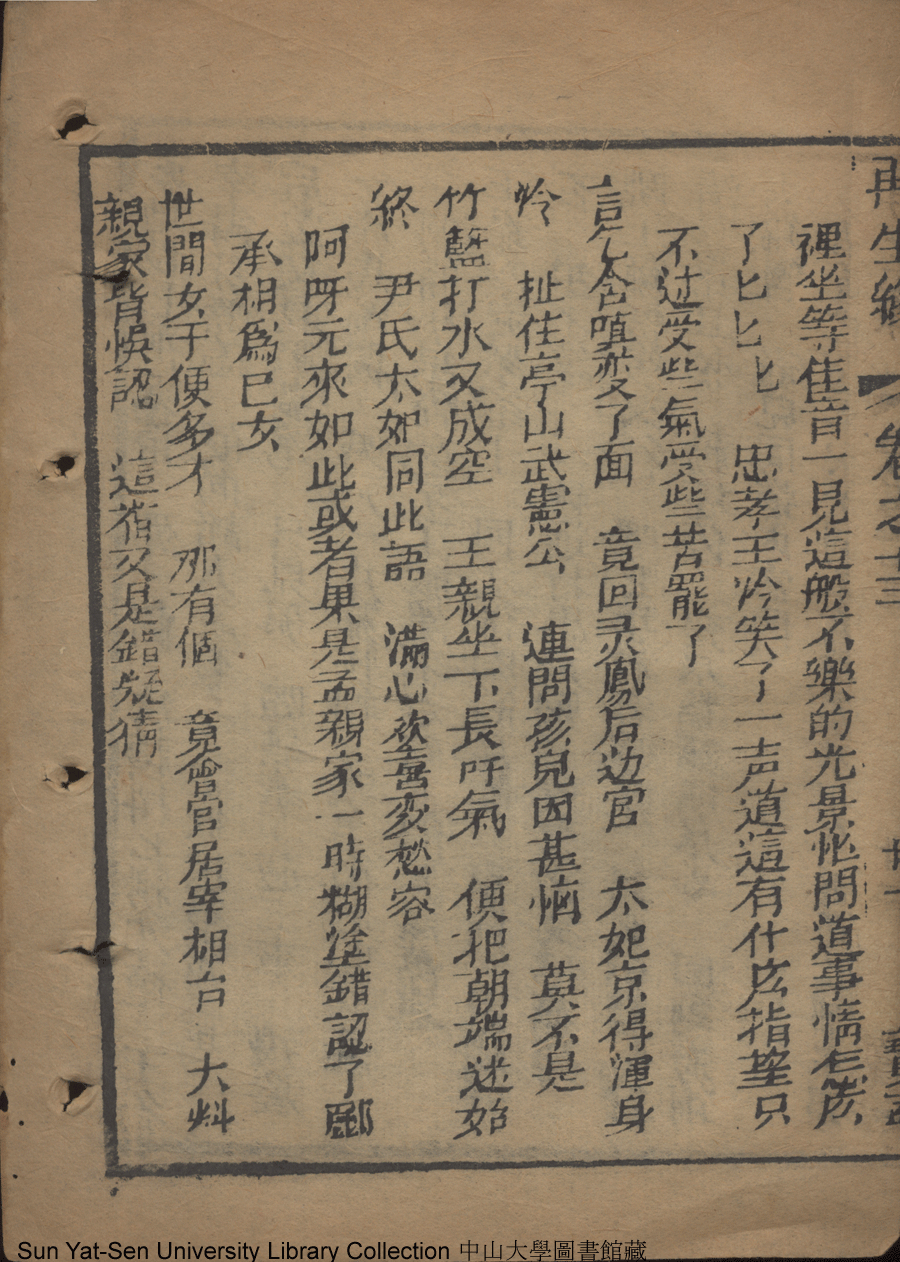 再生緣 卷之十三 廿一
裡坐等佳音一見這般不樂的光景忙問道事情怎庅
了匕匕匕 忠孝王冷笑了一声道這有什庅指望只
不过受些氣受些苦罷了
言乞含嗔变了面 竟回灵鳳后边宫 太妃京得渾身
冷 扯住亭山武憲公 連問孩兒因甚恼 莫不是
竹籃打水又成空 王親坐下長吁氣 便把朝端述始
終 尹氏太妃同此語 滿心歡喜变愁容
阿呀元來如此或者果是孟親家一時糊塗錯認了酈
承相爲已女
世間女子便多才 那有個 竟會官居宰相台 大料
親家皆悞認 這宿又是錯疑猜
Sun Yat-Sen University Library Collection 中山大學圖書館藏